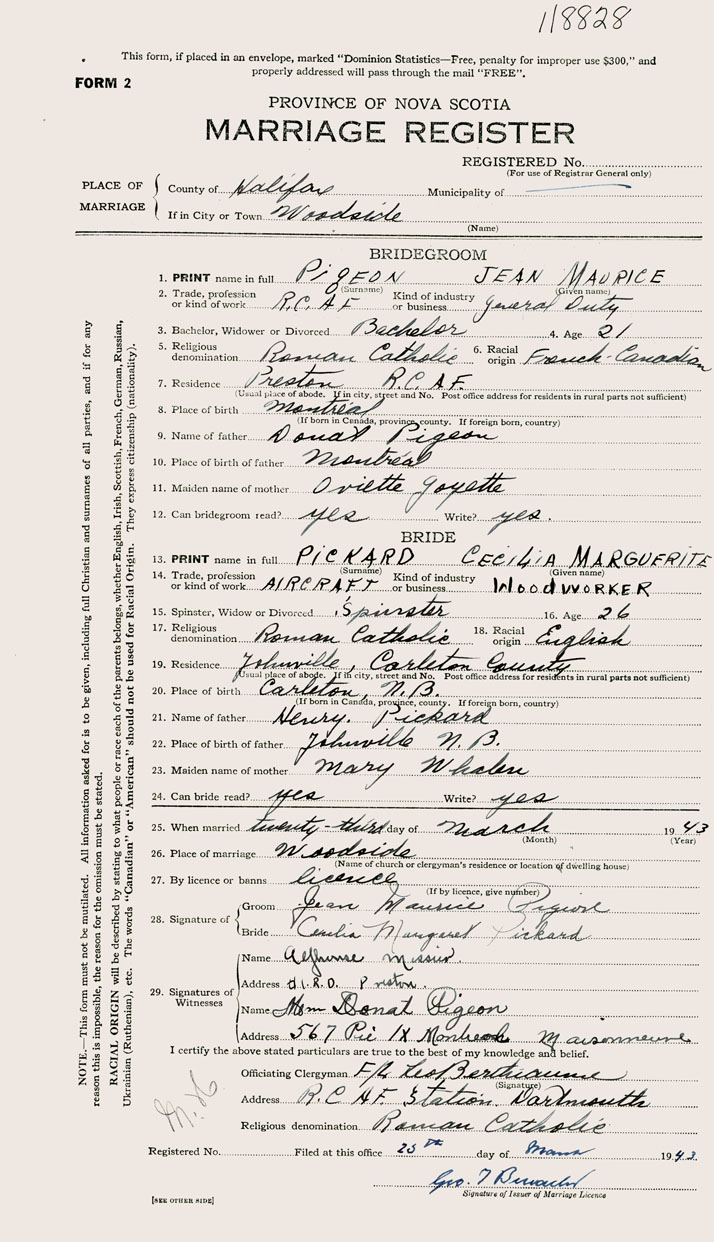 118828
This form, if placed in an envelope, marked "Dominion Statistics—Free, penalty for improper use $300," and
properly addressed will pass through the mail "FREE".
FORM 2
PROVINCE OF NOVA SCOTIA
MARRIAGE REGISTER
REGISTERED No.
(For use of Registrar General only)
PLACE OF MARRIAGE
County of Halifax Municipality of
If in City or Town Woodside
(Name)
BRIDEGROOM
1. PRINT name in full PIGEON JEAN MAURICE
(Surname) (Given name)
2. Trade, profession or kind of work R.C.A.F Kind of industry or business General Duty
3. Bachelor, Widower or Divorced Bachelor 4. Age 21
5. Religious denomination Roman Catholic 6. Racial origin French-Canadian
7. Residence Preston R.C.A.F.
(Usual place of abode. If in city, street and No. Post office address for residents in rural parts not sufficient)
8. Place of birth Montréal
(If born in Canada, province, county. If foreign born, country)
9. Name of father Donat Pigeon
10. Place of birth of father Montréal
11. Maiden name of mother Oviette Goyette
12. Can bridegroom read? yes Write? yes.
BRIDE
13. PRINT name in full PICKARD CECILIA MARGUERITE
(Surname) (Given name)
14. Trade, profession or kind of work AIRCRAFT Kind of industry or business WOODWORKER
15. Spinster, Widow or Divorced Spinster 16. Age 26
17. Religious denomination Roman Catholic 18. Racial origin English
19. Residence Johnville, Carleton County
(Usual place of abode. If in city, street and No. Post office address for residents in rural parts not sufficient)
20. Place of birth Carleton, N.B.
(If born in Canada, province, county. If foreign born, country)
21. Name of father Henry. Pickard
22. Place of birth of father Johnville N.B.
23. Maiden name of mother Mary Whalen
24. Can bride read? yes Write? yes
25. When married twenty-third day of March 1943
(Month) (Year)
26. Place of marriage Woodside
(Name of church or clergyman's residence or location of dwelling house)
27. By licence or banns licence
(If by licence, give number)
28. Signature of
Groom Jean Maurice Pigeon
Bride Cecilia Margaret Pickard
29. Signatures of Witnesses
Name Alphonse
Address Preston.
Name Donat Pigeon
Address 567 Pie IX Montreal Maisonneuve
I certify the above stated particulars are true to the best of my knowledge and belief.
Officiating Clergyman F/L Leo Bertheaume
(Signature)
Address R.C.A.F. Station. Dartmouth
Religious denomination Roman Catholic
Registered No. Filed at this office 25th day of March 1943.
Geo. T
Signature of Issuer of Marriage Licence
[SEE OTHER SIDE]
NOTE.—This form must not be mutilated. All information asked for is to be given, including full Christian and surnames of all parties, and if for any
reason this is impossible, the reason for the omission must be stated.
RACIAL ORIGIN will be described by stating to what people or race each of the parents belongs, whether English, Irish, Scottish, French, German, Russian,
Ukrainian (Ruthenian), etc. The words "Canadian" or "American" should not be used for Racial Origin. They express citizenship (nationality).